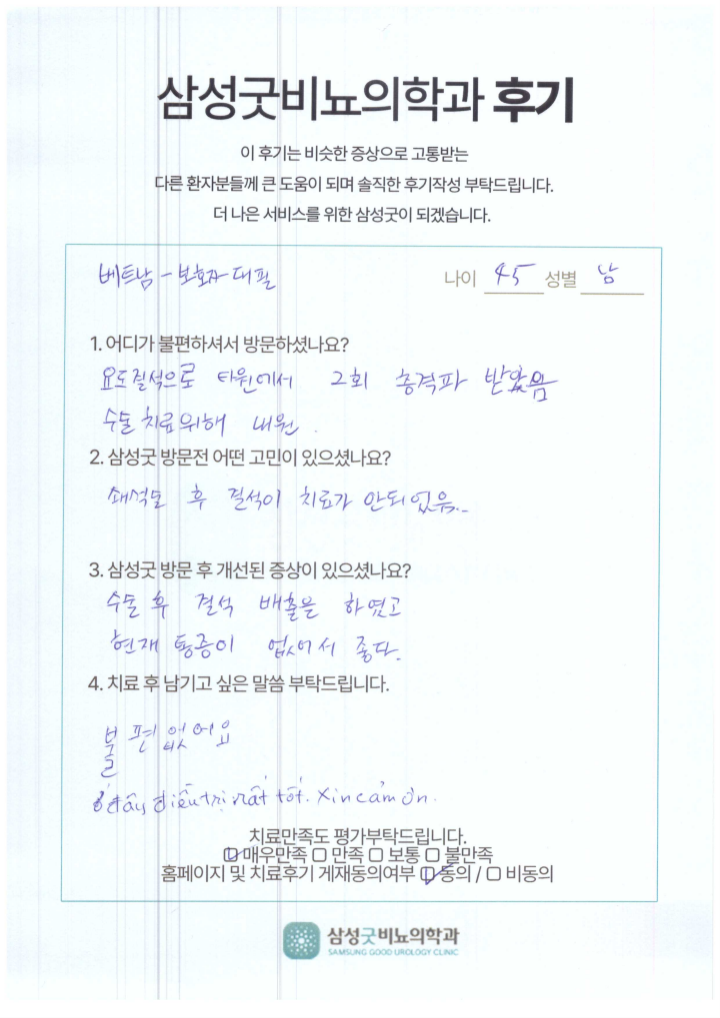 삼성굿비뇨의학과 후기
이 후기는 비슷한 증상으로 고통받는
다른 환자분들께 큰 도움이 되며 솔직한 후기작성 부탁드립니다.
더 나은 서비스를 위한 삼성굿이 되겠습니다.
베트남 - 보호자 대필 나이 45 성별 남
1. 어디가 불편하셔서 방문하셨나요?
요도결석으로 타원에서 2회 충격파 받았음
수술 치료위해 내원.
2. 삼성굿 방문전 어떤 고민이 있으셨나요?
쇄석술 후 결석이 치료가 안되었음..
3. 삼성굿 방문 후 개선된 증상이 있으셨나요?
수술 후 결석 배출을 하였고
현재 통증이 없어서 좋다.
4. 치료 후 남기고 싶은 말씀 부탁드립니다.
불편없어요
ở đây điều trị rất tốt. Xin cảm ơn.
치료만족도 평가부탁드립니다.
☑ 매우만족 ☐ 만족 ☐ 보통 ☐ 불만족
홈페이지 및 치료후기 게재동의여부 ☑ 동의 / ☐ 비동의
삼성굿비뇨의학과
SAMSUNG GOOD UROLOGY CLINIC